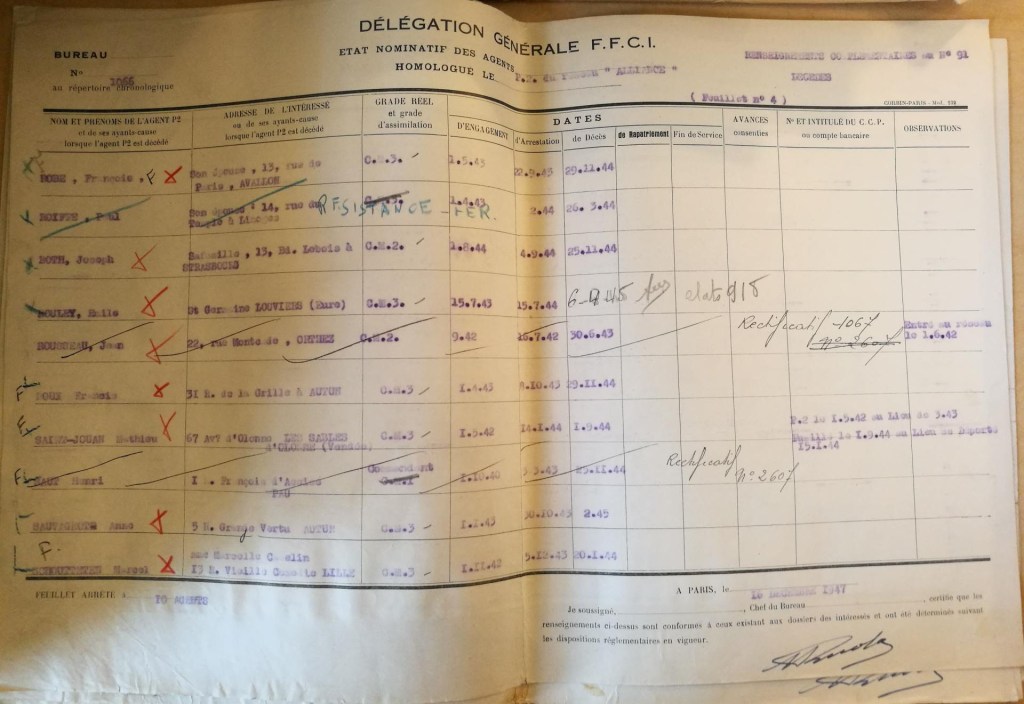 DÉLÉGATION GÉNÉRALE F.F.C.I.
BUREAU
ETAT NOMINATIF DES AGENTS
HOMOLOGUE LE P.2. du réseau " ALLIANCE "
RENSEIGNEMENTS COMPLEMENTAIRES au N° 91
N° 1066
au répertoire chronologique
DECEDES
( Feuillet n° 4 )
CORBIN-PARIS
NOM ET PRÉNOMS DE L'AGENT P2
et de ses ayants-cause
lorsque l'agent P2 est décédé
ADRESSE DE L'INTÉRESSÉ
ou de ses ayants-cause
lorsque l'agent P2 est décédé
GRADE RÉEL
et grade
d'assimilation
DATES
D'ENGAGEMENT
d'Arrestation
de Décès
de Rapatriement
Fin de Service
AVANCES
consenties
N° ET INTITULÉ DU C.C.P.
ou compte bancaire
OBSERVATIONS
François, F Son épouse, 13, rue de C.M.3. 1.5.43 22.9.43 29.11.44
Paris, AVALLON
Paul Son épouse 14, rue du 1.4.43 2.44 26. 3.44
Temple à Limoges
RESISTANCE - FER.
ROTH, Joseph 13, Bd. Lebois à C.M.2. 1.8.44 4.9.44 25.11.44
STRASBOURG
Emile St Germaine LOUVIERS (Eure) C.M.3. 15.7.43 15.7.44 6-9 45
ROUSSEAU, Jean 22, rue , ORTHES C.M.2. 9.42 16.7.42 30.6.43 Rectificatif 1067
N° 2607
Entré au réseau
le 1.6.42
F ROUX Francis 31 R. de la Grille à AUTUN C.M.3 1.4.43 8.10.43 29.11.44
F SAINT-JOUAN Mathieu 67 Avt d'Olonne LES SABLES C.M.3 1.5.42 14.1.44 1.9.44
d'OLONNE (Vendée)
P.2 le 1.5.42 au Lieu de 3.43
Fusillé le 1.9.44 au Lieu de Déporté
15.1.44
Henri François d'Assise Commandant C.M.1 1.10.40 3.3.43 25.11.44
PAU
Rectificatif N° 2607
5 R. Grange Vertu AUTUN C.M.3 1.1.43 30.10.43 2.45
F.
Marcel Mme Marcelle
13 R. Vieille Comédie LILLE C.M.3 1.11.42 5.12.43 20.1.44
FEUILLET ARRÊTÉ A 10 AGENTS
A PARIS, le 1947
Je soussigné, , Chef du Bureau , certifie que les
renseignements ci-dessus sont conformes à ceux existant aux dossiers des intéressés et ont été déterminés suivant
les dispositions réglementaires en vigueur.